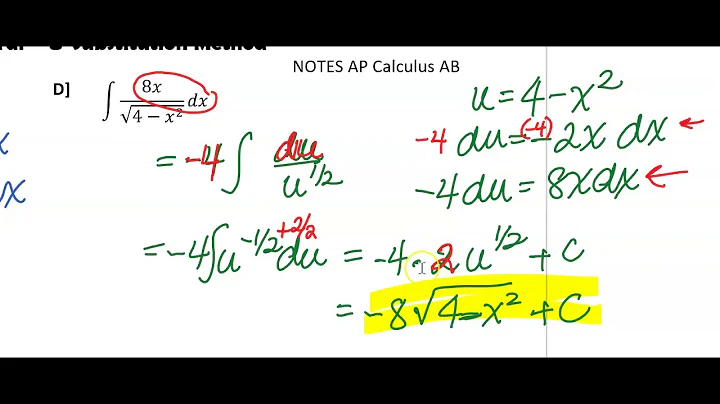 U-Substitution Method
NOTES AP Calculus AB
D] ∫ 8x/√(4 − x²) dx
u = 4 − x²
-4 du = (-4) -2x dx ←
-4du = 8xdx ←
= -4 ∫ du/u^1/2
= -4∫u^-1/2 +2/2 du = -4 · 2 u^1/2 + C
= -8√(4-x²) + C
x
dx